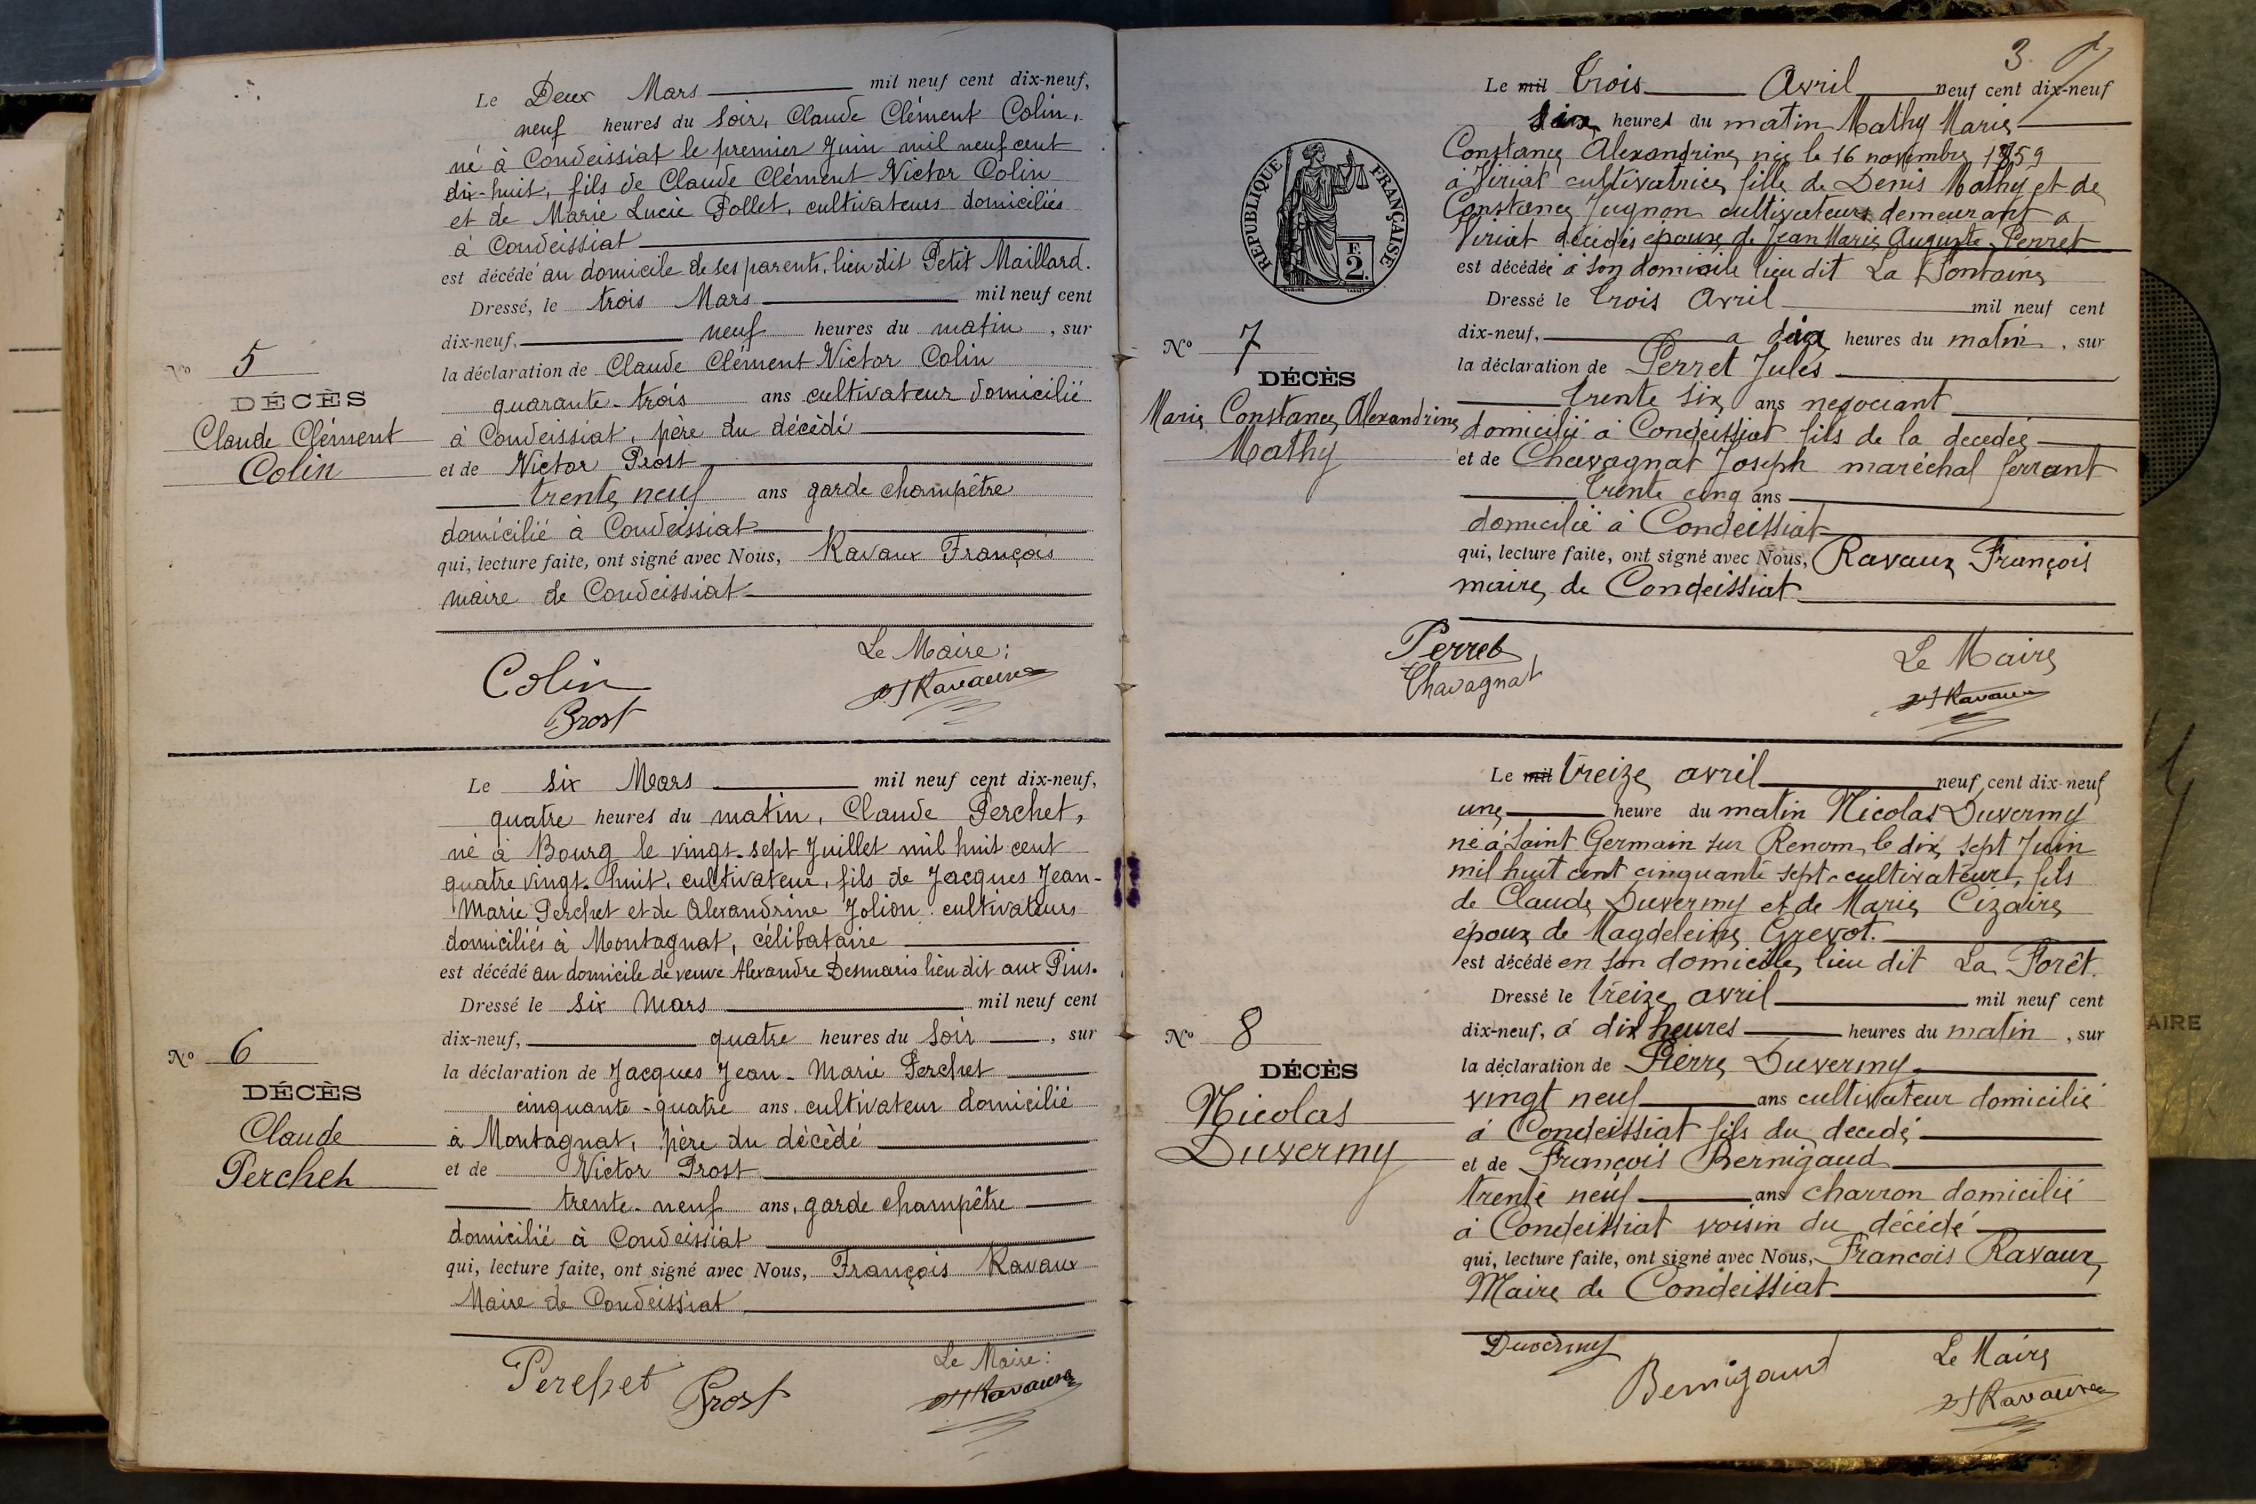 Le Deux Mars mil neuf cent dix-neuf,
neuf heures du soir, Claude Clément Colin,
né à Condeissiat le premier Juin mil neuf cent
dix-huit, fils de Claude Clément Victor Colin
et de Marie Lucie Pollet, cultivateurs domiciliés
à Condeissiat
est décédé au domicile de ses parents, lieu dit Petit Maillard.
Dressé, le trois Mars mil neuf cent
dix-neuf, neuf heures du matin, sur
la déclaration de Claude Clément Victor Colin
quarante-trois ans cultivateur domicilié
à Condeissiat, père du décédé
et de Victor Prost
trente neuf ans garde champêtre
domicilié à Condeissiat
qui, lecture faite, ont signé avec Nous, Ravaux François
maire de Condeissiat
N° 5
DÉCÈS
Claude Clément
Colin
Le Maire:
Colin
Prost
Ravaux
Le six Mars mil neuf cent dix-neuf,
quatre heures du matin, Claude Perchet,
né à Bourg le vingt-sept Juillet mil huit cent
quatre vingt-huit, cultivateur, fils de Jacques Jean-
Marie Perchet et de Alexandrine Jolion cultivateurs
domiciliés à Montagnat, célibataire
est décédé au domicile de veuve Alexandre Desmaris lieu dit aux Pins.
Dressé le six Mars mil neuf cent
dix-neuf, quatre heures du soir, sur
la déclaration de Jacques Jean-Marie Perchet
cinquante-quatre ans, cultivateur domicilié
à Montagnat, père du décédé
et de Victor Prost
trente-neuf ans, garde champêtre
domicilié à Condeissiat
qui, lecture faite, ont signé avec Nous, François Ravaux
Maire de Condeissiat
N° 6
DÉCÈS
Claude
Perchet
Le Maire:
Perchet
Prost
Ravaux
3
Le mil trois Avril neuf cent dix-neuf
six heures du matin Mathy Marie
Constance Alexandrine née le 16 novembre 1859
à Viriat cultivatrice fille de Denis Mathy et de
Constance Jugnon cultivateurs demeurant a
Viriat décédés épouse de Jean Marie Auguste Perret
est décédée à son domicile lieu dit La Fontaine
Dressé le trois Avril mil neuf cent
dix-neuf, a dix heures du matin, sur
la déclaration de Perret Jules
trente six ans negociant
domicilié à Condeissiat fils de la decedée
et de Chavagnat Joseph maréchal ferrant
trente cinq ans
domicilié à Condeissiat
qui, lecture faite, ont signé avec Nous, Ravaux François
maire de Condeissiat
RÉPUBLIQUE FRANÇAISE
F. 2.
N° 7
DÉCÈS
Marie Constance Alexandrine
Mathy
Perret
Chavagnat
Le Maire
Ravaux
Le mil treize avril neuf cent dix-neuf
une heure du matin Nicolas Duvermy
né à Saint Germain sur Renom le dix sept Juin
mil huit cent cinquante sept cultivateur, fils
de Claude Duvermy et de Marie Cizaire
époux de Magdeleine Grevot.
est décédé en son domicile, lieu dit La Forêt.
Dressé le treize avril mil neuf cent
dix-neuf, à dix heures heures du matin, sur
la déclaration de Pierre Duvermy
vingt neuf ans cultivateur domicilié
à Condeissiat fils du decedé
et de François Bernigaud
trente neuf ans charron domicilié
à Condeissiat voisin du décédé
qui, lecture faite, ont signé avec Nous, Francois Ravaux
Maire de Condeissiat
N° 8
DÉCÈS
Nicolas
Duvermy
Duvermy
Bernigaud
Le Maire
Ravaux
AIRE